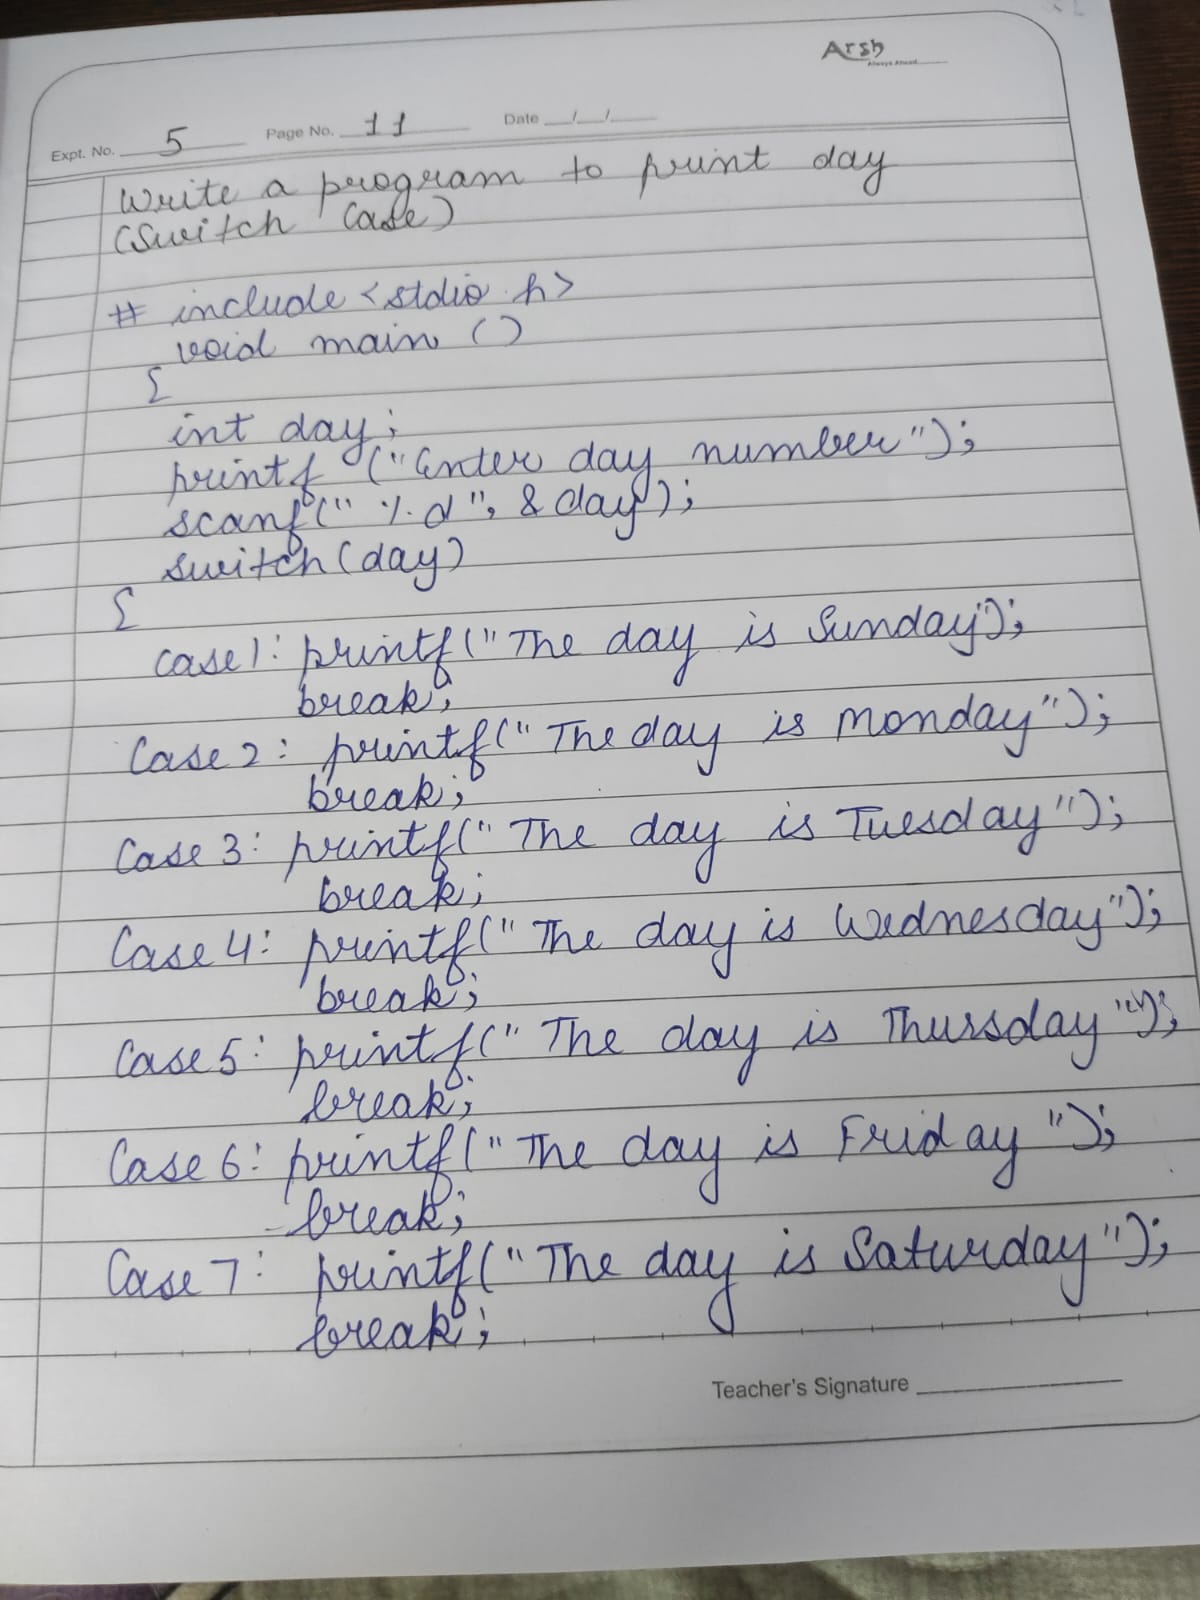 Arsh
Always Ahead
Expt. No. 5 Page No. 11 Date __/__/____
Write a program to print day
(Switch Case)
# include <stdio.h>
void main ()
{
int day;
printf ("Enter day number");
scanf(" %d", &day);
switch(day)
{
case 1: printf("The day is Sunday");
break;
Case 2: printf("The day is Monday");
break;
Case 3: printf("The day is Tuesday");
break;
Case 4: printf("The day is Wednesday");
break;
Case 5: printf("The day is Thursday");
break;
Case 6: printf("The day is Friday");
break;
Case 7: printf("The day is Saturday");
break;
Teacher's Signature